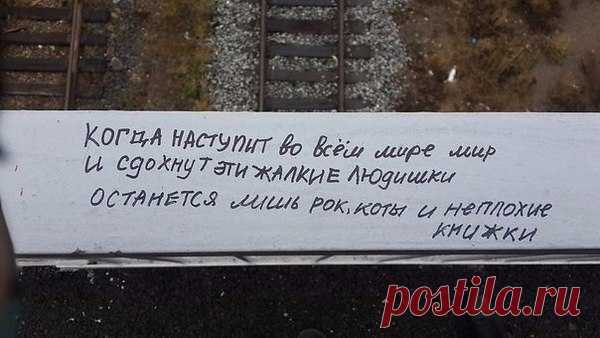 КОГДА НАСТУПИТ во всём мире мир
И СДОХНУТ ЭТИ ЖАЛКИЕ ЛЮДИШКИ
ОСТАНЕТСЯ лишь РОК, КОТЫ и НЕПЛОХИЕ
КНИЖКИ
postila.ru